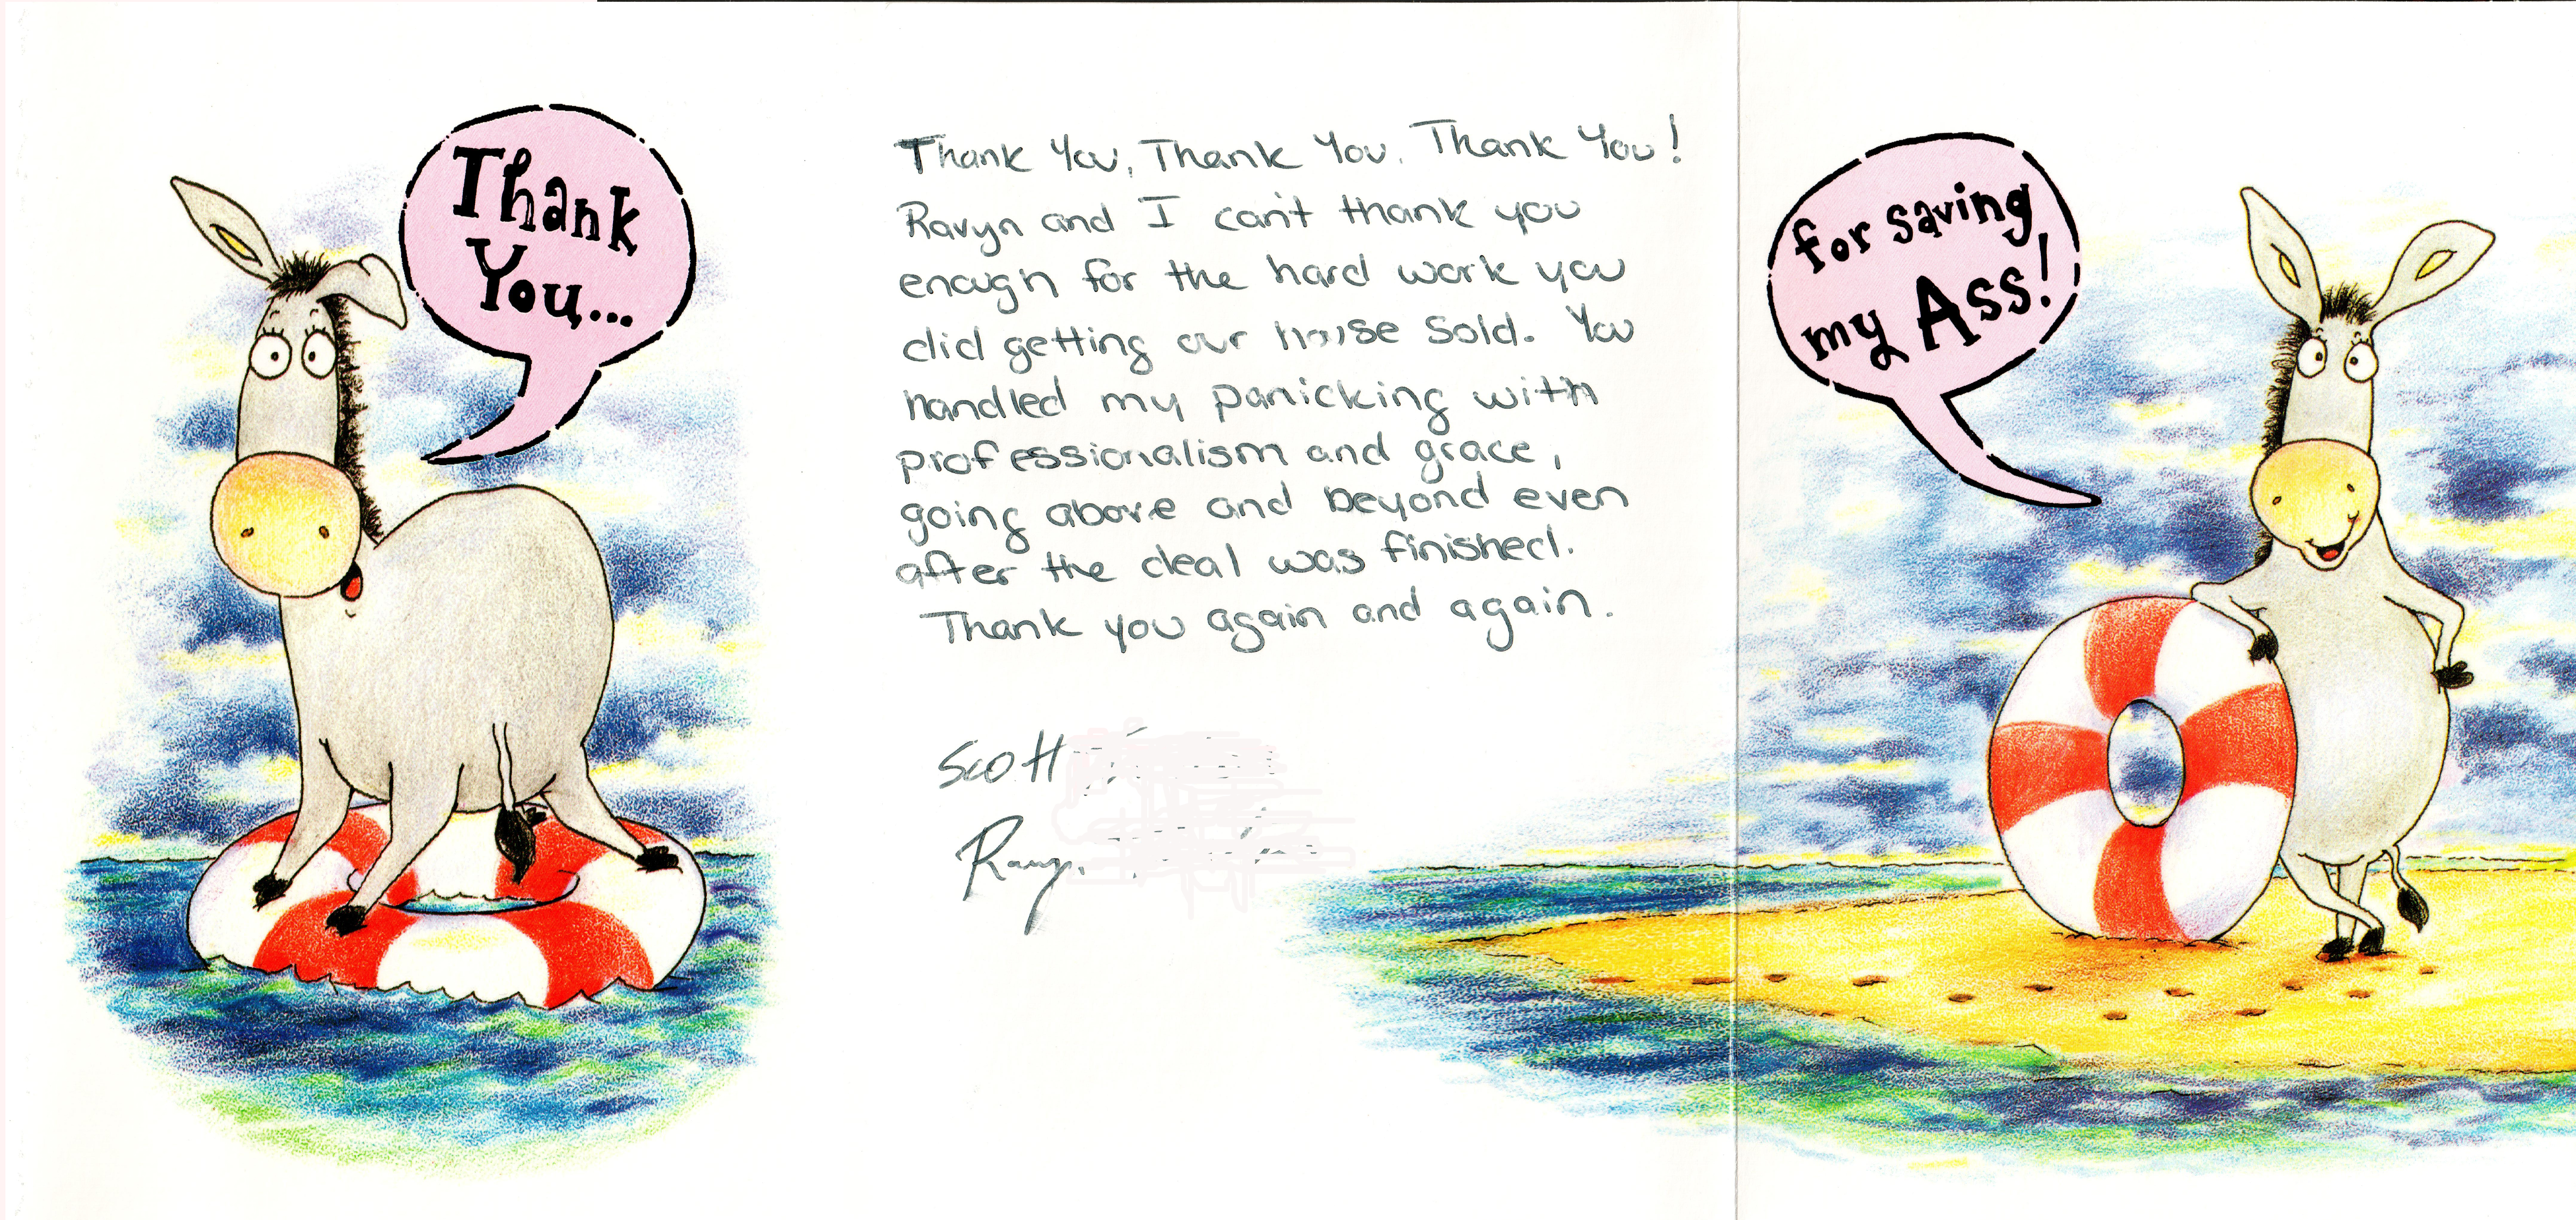 Thank
You...
Thank You, Thank You, Thank You!
Ravyn and I can't thank you
enough for the hard work you
did getting our house sold. You
handled my panicking with
professionalism and grace,
going above and beyond even
after the deal was finished.
Thank you again and again.
Scott
Ravyn
for saving
my Ass!